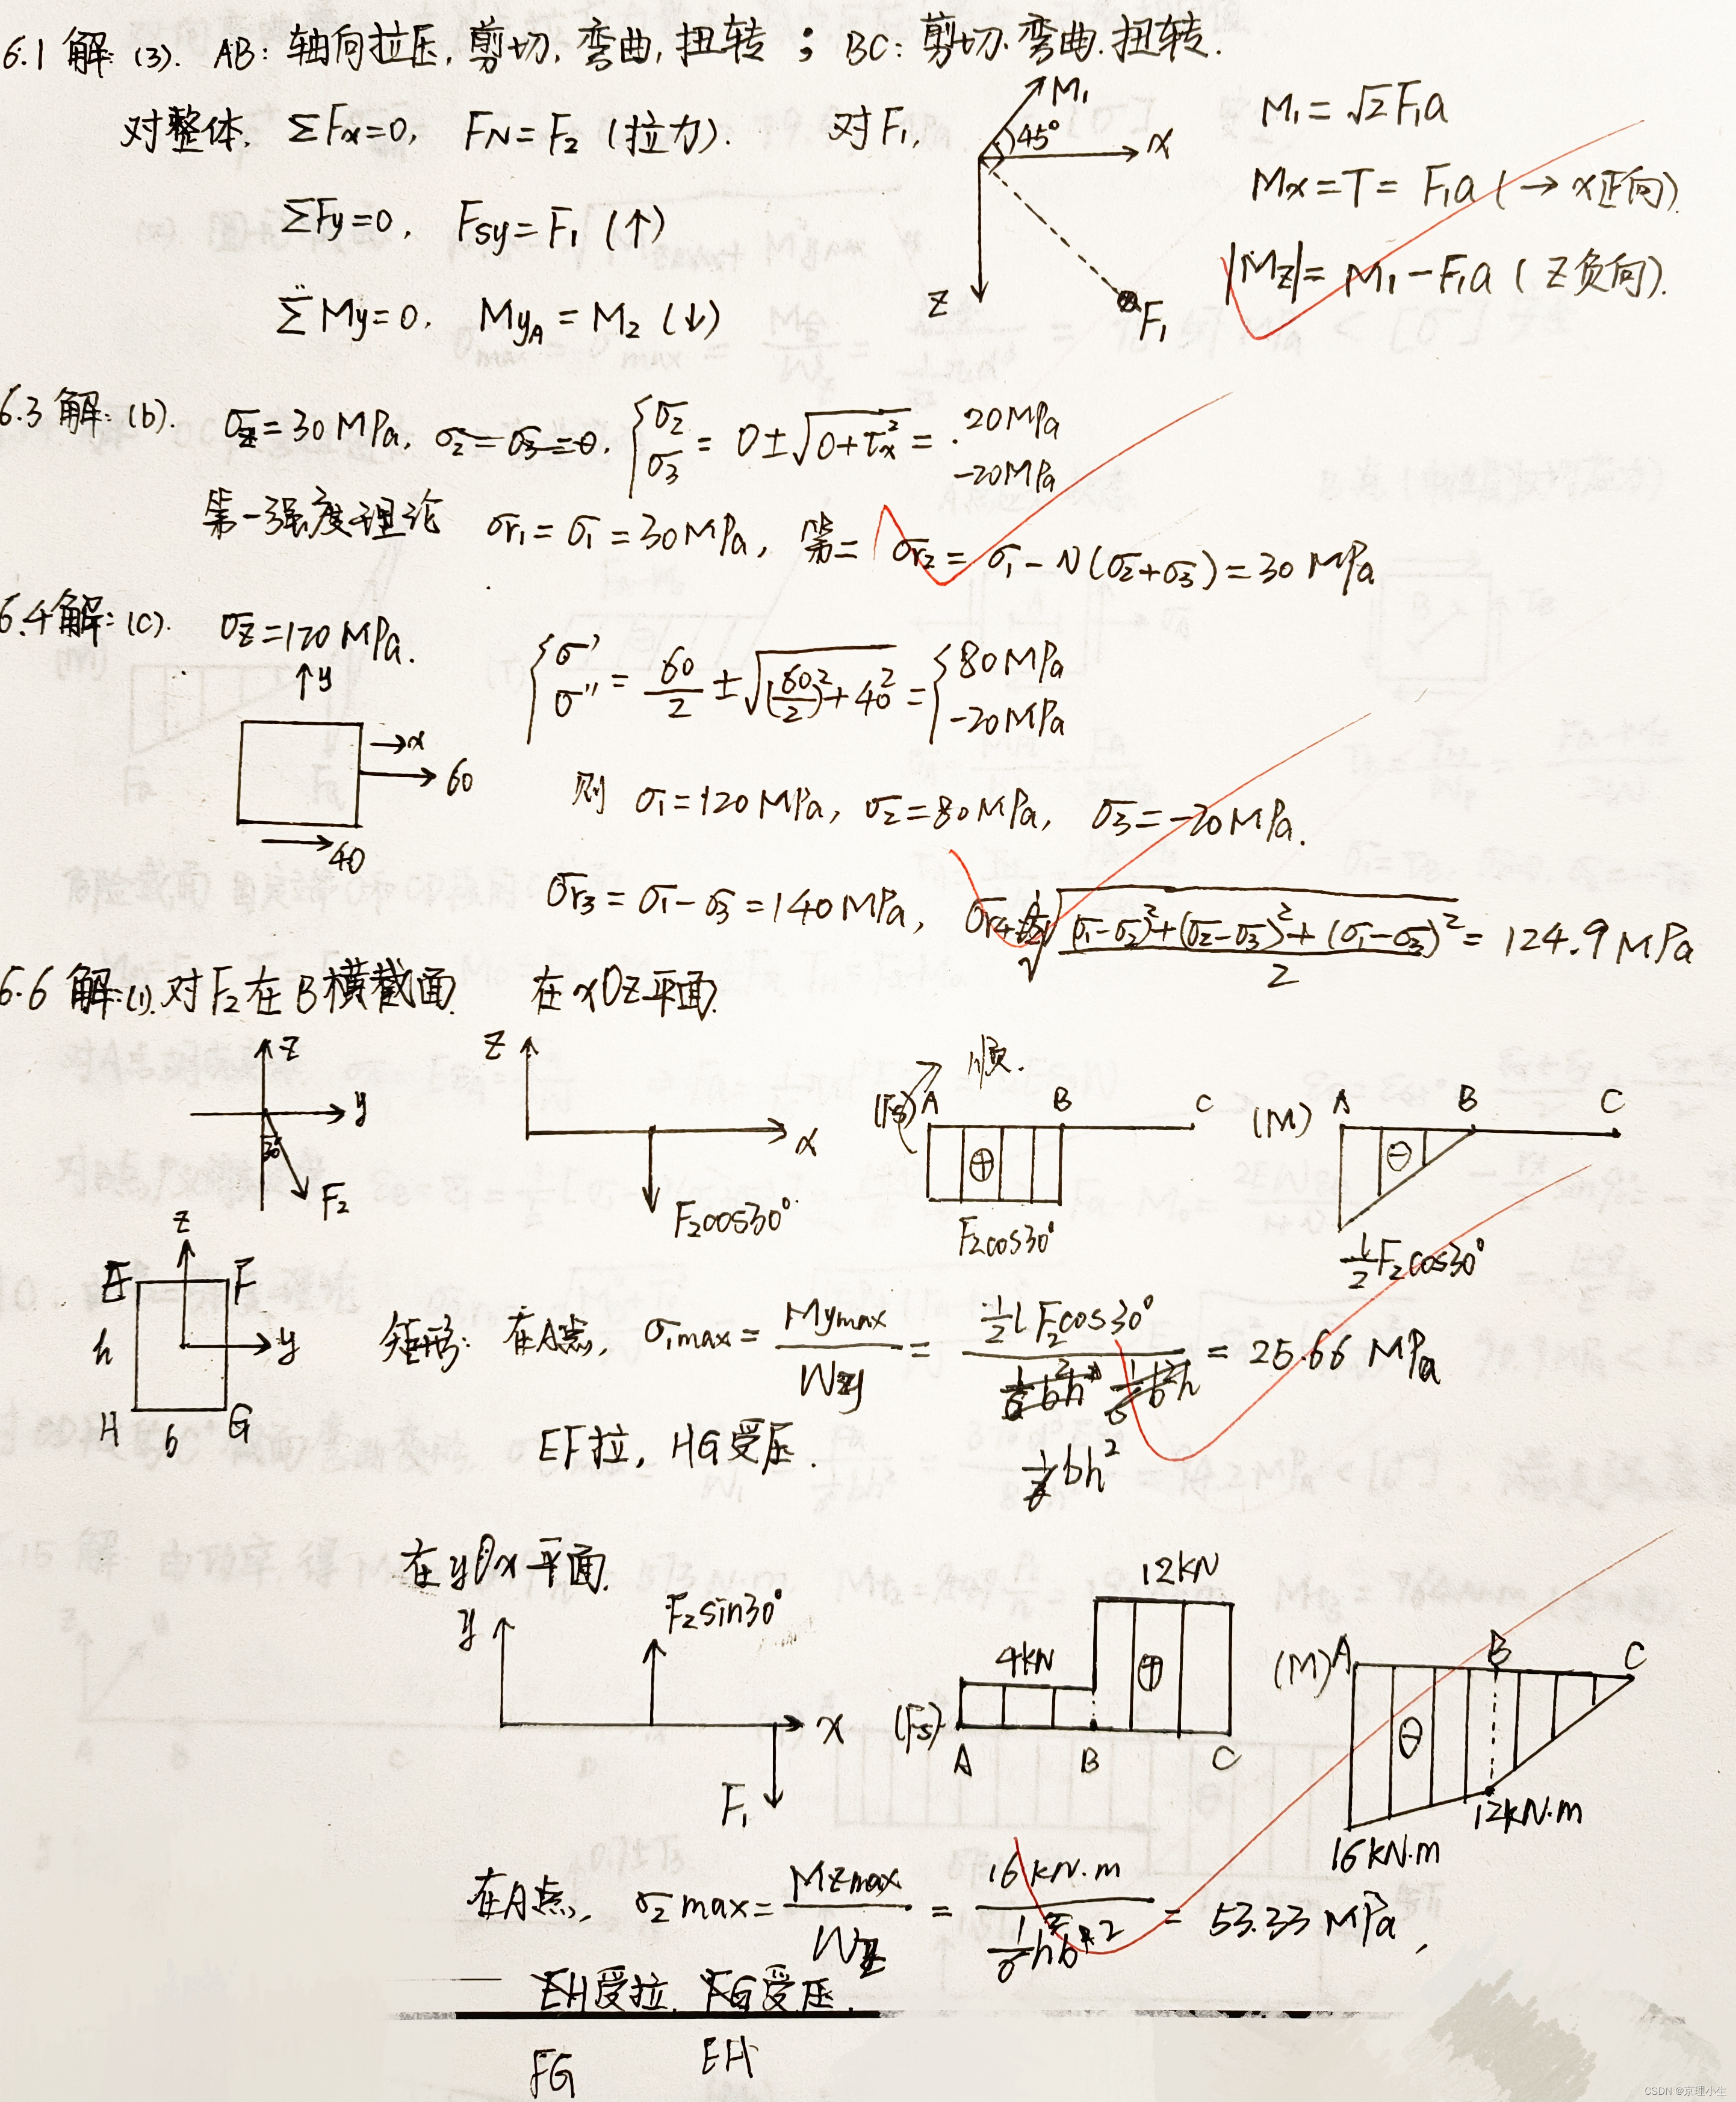 6.1 解: (3). AB: 轴向拉压, 剪切, 弯曲, 扭转 ; BC: 剪切. 弯曲. 扭转.
对整体, ΣFx=0, FN=F2 (拉力). 对F1,
M1 45° x z F1
M1=√2F1a
Mx=T=F1a (→x正向).
ΣFy=0, Fsy=F1 (↑)
|Mz|=M1-F1a (Z负向).
ΣMy=0, MyA=M2 (↓)
6.3 解: (b). σz=30MPa, σ2=σ3=0. {σ2 σ3 = 0±√(0+τx²) = 20MPa -20MPa
第一强度理论 σr1=σ1=30MPa, 第二 σr2=σ1-ν(σ2+σ3)=30MPa
6.4 解: (c). σz=120MPa.
{σ' σ'' = 60/2 ± √((60/2)²+40²) = {80MPa -20MPa
↑y →x 60 40
则 σ1=120MPa, σ2=80MPa, σ3=-20MPa.
σr3=σ1-σ3=140MPa, σr4=√(((σ1-σ2)²+(σ2-σ3)²+(σ1-σ3)²)/2)=124.9MPa
6.6 解: (1). 对F2在B横截面. 在xOz平面.
z y 30 F2
z x F2cos30°
(Fs) 顺. A B C ⊕ F2cos30°
(M) A B C ⊖ 1/2F2cos30°
z E F h y H b G
矩形: 在A点, σ1max = Mymax/Wy = (1/2 l F2cos30°)/(1/6 bh²) = 25.66 MPa
EF拉, HG受压.
在yOx平面.
y F2sin30° x F1
(Fs) 4kN 12kN ⊕ A B C
(M) A B C ⊖ 16kN·m 12kN·m
在A点, σ2max = Mzmax/Wz = 16kN·m/(1/6 hb²) = 53.33MPa,
EH受拉. FG受压.
FG EH
CSDN @京理小生